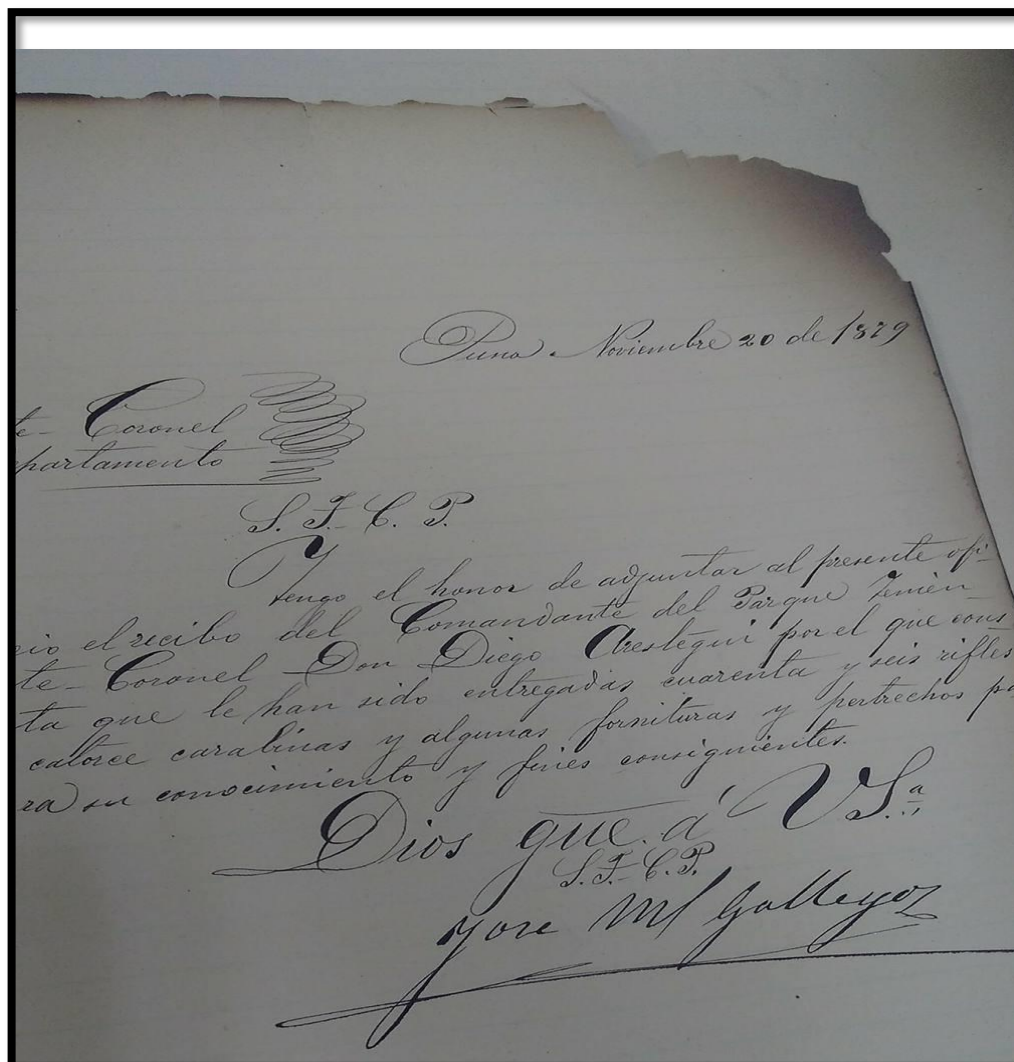 Puno Noviembre 20 de 1879
te- Coronel
epartamento
S. P. C. P.
Tengo el honor de adjuntar al presente ofi-
cio el recibo del Comandante del Parque Tenien-
te- Coronel Don Diego Arestegui por el que cons-
ta que le han sido entregadas cuarenta y seis rifles
catorce carabinas y algunas fornituras y pertrechos pa
ra su conocimiento y fines consiguientes.
Dios gue. á VSa.
S. P. C. P.
Jose Ml Gallegoz